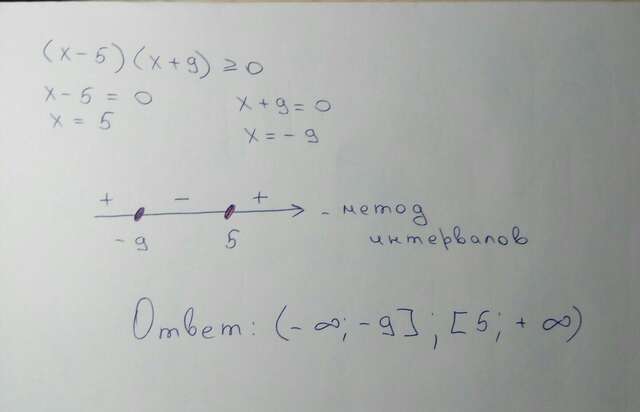 (x-5)(x+9) ≥ 0
x-5 = 0 x+9=0
x = 5 x=-9
+ - +
- метод
-9 5 интервалов
Ответ: (-∞;-9]; [5; +∞)